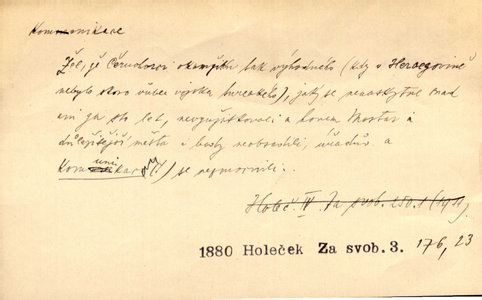 Komunikace
Žel, že Černohorci okamžiku tak výhodného (kdy v Hercegovině
nebylo skoro vůbec vojska tureckého), jaký se nenaskytne snad
ani za sto let, nevyužitkovali a kovem Mostar i
důležitější města i bašty neobsadili, úřadův a
Komunikací (!) se nezmocnili.
Holeč. IV. Za svob. 250.1 (1911)
1880 Holeček Za svob. 3. 176, 23